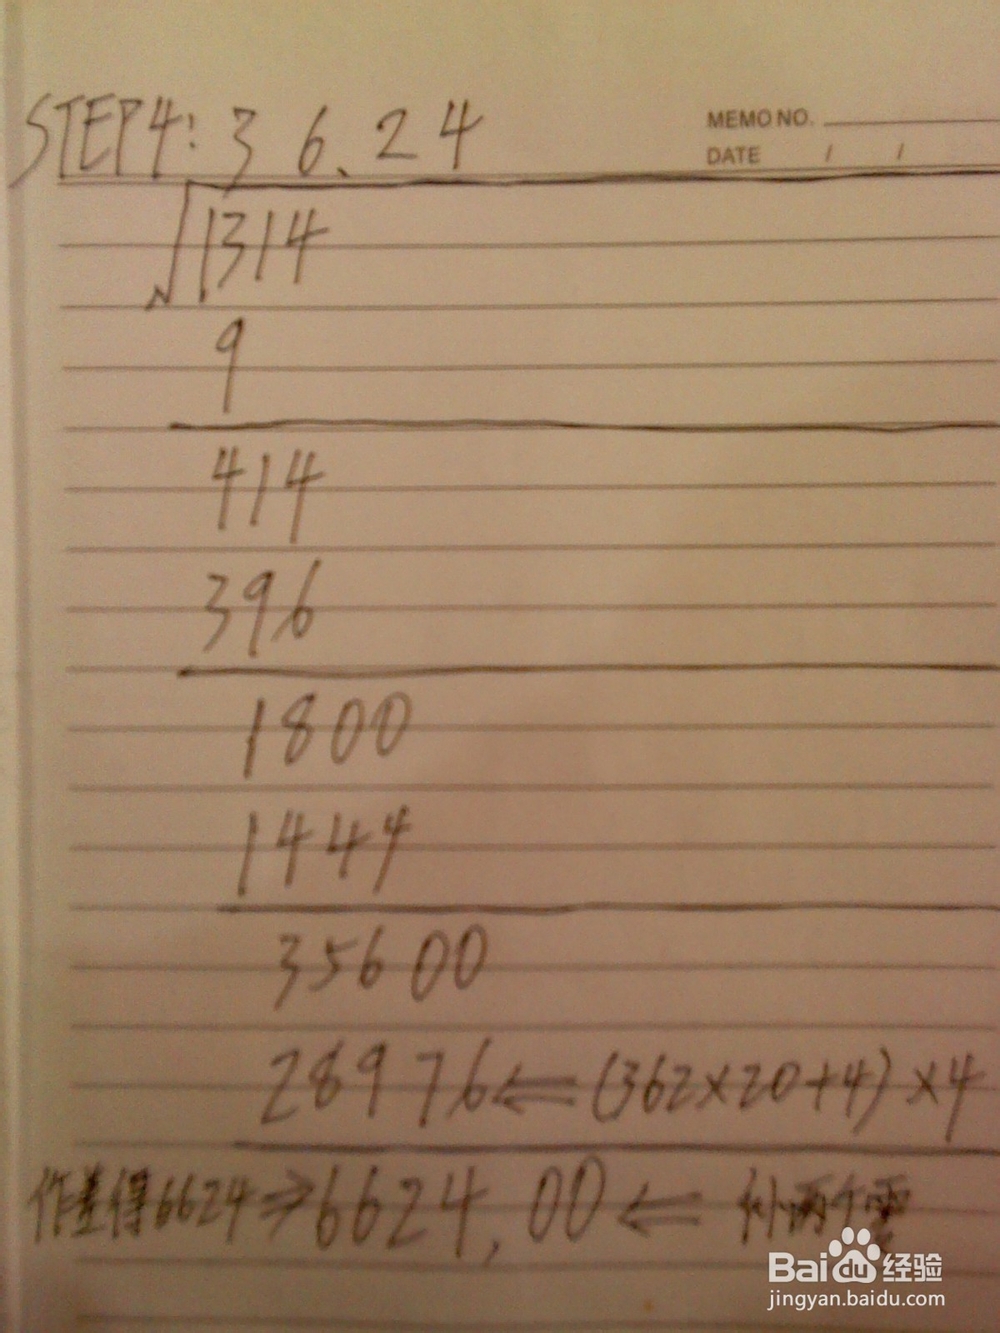 STEP4: 3 6. 2 4
MEMO NO.
DATE / /
√1314
9
414
396
1800
1444
35600
28976 ⇐ (362×20+4)×4
作差得6624 ⇒ 6624,00 ⇐ 补两个零
Baidu 经验
jingyan.baidu.com